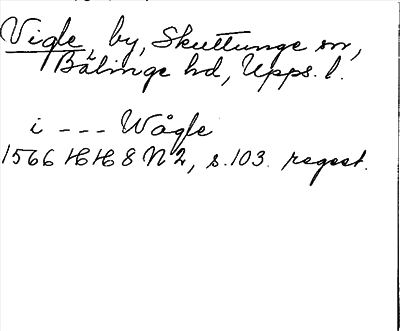 Vigle, by, Skuttunge sn,
Bälinge hd, Upps. l.
i --- Wågle
1566 HH 8 N 2, s. 103. regest.